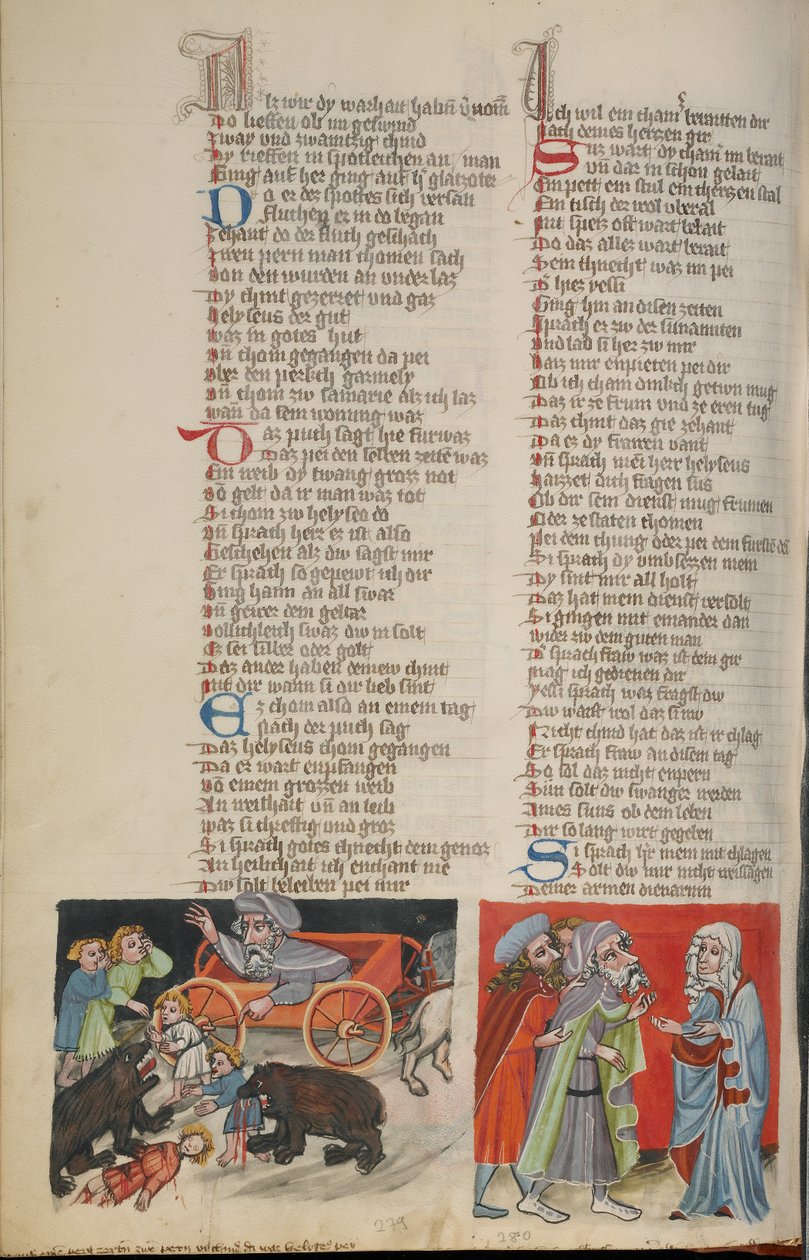 Alz wir dy warhait habn v̄nom̄
Do lieffen ob im geswind
Zway vnd zwaintzig chind
Dy rieffen in spotleichen an man
Ging auf her ging auf glatzoter
Do er dez spottes sich versan
Fluchen er in do began
Zehant do der fluch geschach
Zwen pern man chomen sach
Von den wurden an vnder laz
Dy chint gezerret vnd gaz
Helyseus der gut
Waz in gotes hut
Vn̄ chom gegangen da pei
Vber den perkch garmely
Vn̄ chom zw samarie alz ich laz
Wan da sein wonung waz
Daz puch sagt hie fur waz
Daz pei den selben zeitē waz
Ein weib dy twang grozz not
Vō gelt da ir man waz tot
Si chom zw helyseo do
Vn̄ sprach herr ez ist also
Geschehen alz dw sagst mir
Er sprach so gepewt ich dir
Ging haim an all swar
Vn̄ gewer dem geltar
Vollichleich swaz dw im solt
Ez sei silber oder golt
Daz ander haben deinew chint
Mit dir wann si dir lieb sint
Ez chom also an einem tag
Nach der puch sag
Daz helyseus chom gegangen
Da er wart enpfangen
Vō einem grozzen weib
An weishait vn̄ an leib
Waz si chreftig vnd groz
Si sprach gotes chnecht dein genoz
An heilichait ich enchant nie
Dw solt beleiben pei mir
Ich wil ein cham̄ beraitten dir
Nach deines hertzen gir
Suz wart dy cham̄ im berait
Vn̄ dar in schon gelait
Ein pett ein stul ein cherzen stal
Ein tisch der wol vberal
Mit speis oft wart belait
Do daz allez wart berait
Sein chnecht waz im pei
Der hiez yessi
Ging hin an disen zeiten
Sprach er zw der sunamiten
Vnd lad si her zw mir
Haiz mir enpieten pei dir
Ob ich cham dinkch getwn mug
Daz ir ze frum vnd ze eren tug
Daz chint daz gie zehant
Da ez dy frawen vant
Vn̄ sprach mei herr helyseus
Haizzet dich fragen sus
Ob dir sein dienst mug frumen
Oder ze staten chomen
Pei dem chunig oder pei dem furstē
Si sprach dy vmbsezzen mein
Dy sint mir all holt
Daz hat mein dienst versolt
Si gingen mit einander dan
Wider zw dem guten man
Der sprach fraw waz ist dein gir
Mag ich gedienen dir
Yessi sprach waz fragst dw
Dw waist wol daz si nw
Nicht chind hat daz ist ir chlag
Er sprach fraw an disem tag
So sol daz nicht enpern
Sun solt dw swanger werden
Aines suns ob dem leben
Dir so lang wirt gegeben
Si sprach h̄r mein mit chlagen
Solt dw mir nicht weissagen
Deiner armen dienarinn
279
280